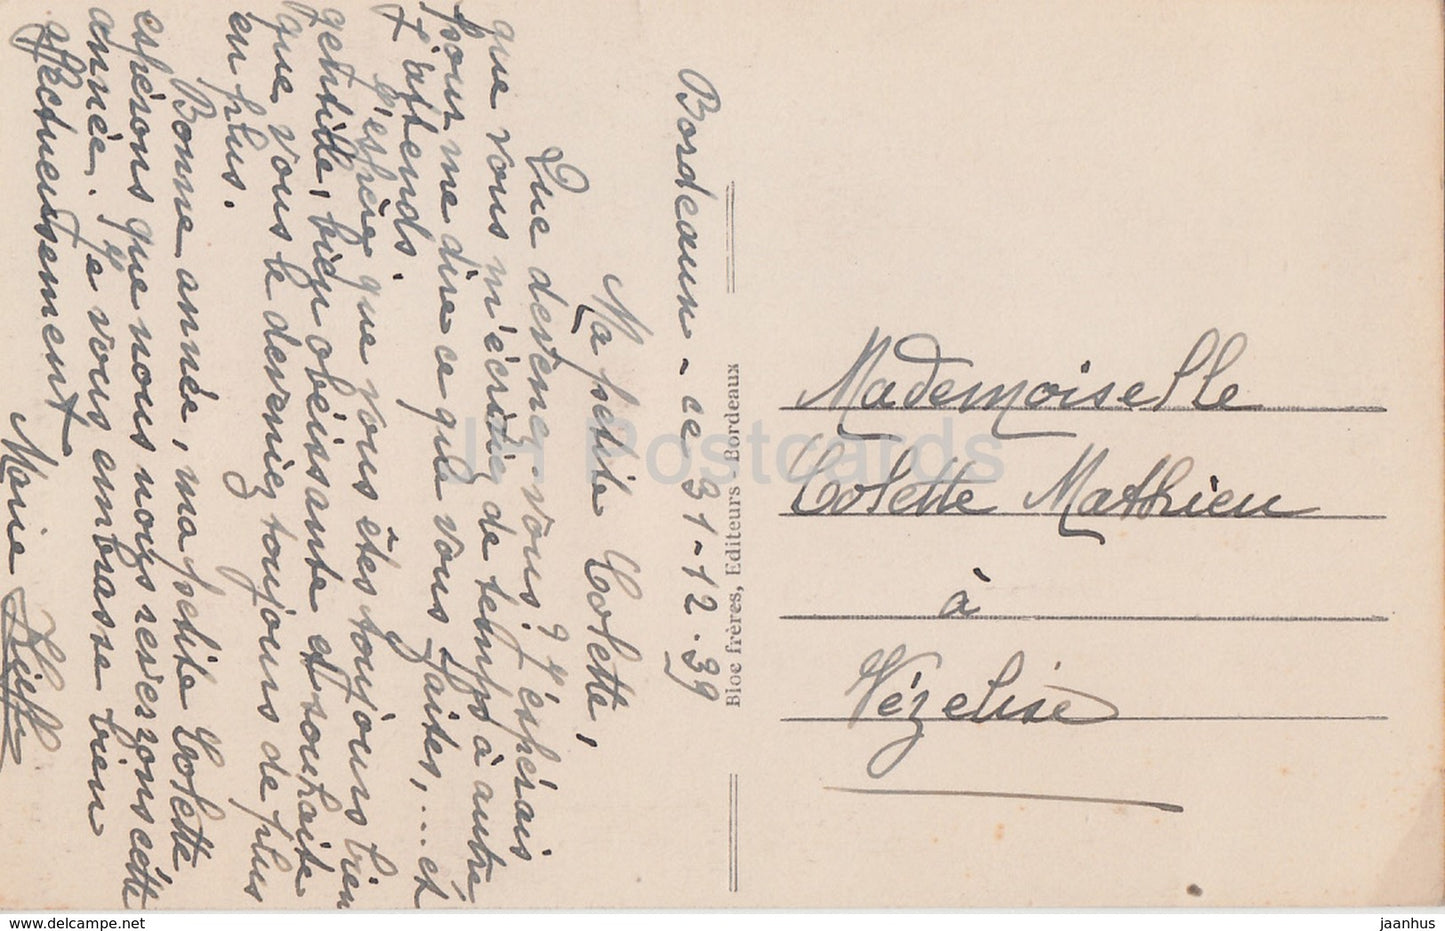 Bordeaux - ce 31-12.39
Ma petite Colette,
Que devenez-vous ? J'espérais
que vous m'écririez de temps à autre
pour me dire ce que vous faites,... et
j'attends.
J'espère que vous êtes toujours bien
gentille, bien obéissante et souhaite
que vous le deveniez toujours de plus
en plus.
Bonne année, ma petite Colette
espérons que nous nous reverrons cette
année. Je vous embrasse bien
affectueusement
Marie
Bloc frères, Editeurs - Bordeaux
Mademoiselle
Colette Mathieu
à
Vézelise
JH Postcards
www.delcampe.net
jaanhus